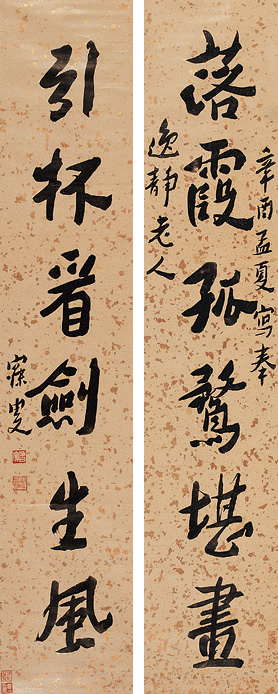 辛酉孟夏寫奉
落霞孤鶩堪畫
逸靜老人
引杯看劍生風
寐叟